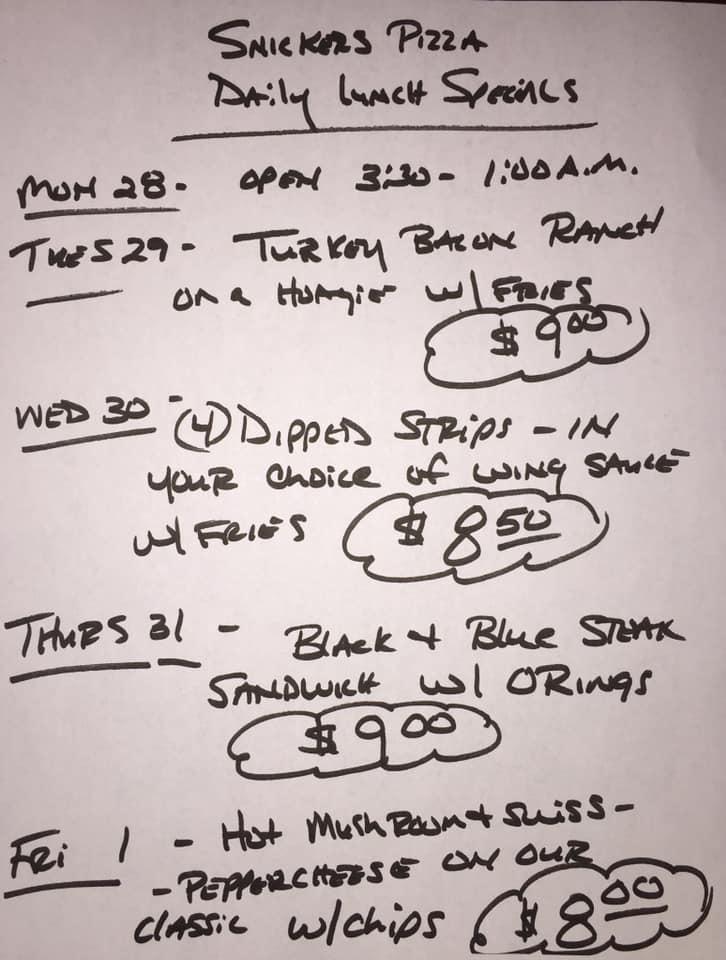 SNICKERS PIZZA
DAily LUNCH SPECiALS
MON 28- OPEN 3:30- 1:00 A.M.
TUES 29- TURKEY BACON RANCH
ON a HOAgiE W/ FRIES
$ 9.00
WED 30 - (4) DIPPED STRIPS - IN
YOUR CHOICE OF WING SAUCE
W/ FRIES $ 8.50
THURS 31 - BLACK + BLUE STEAK
SANDWICH W/ O RINGS
$ 9.00
FRi 1 - HOT MUSHROOM + SWISS -
- PEPPERCHEESE ON OUR
CLASSIC W/ CHIPS $ 8.00